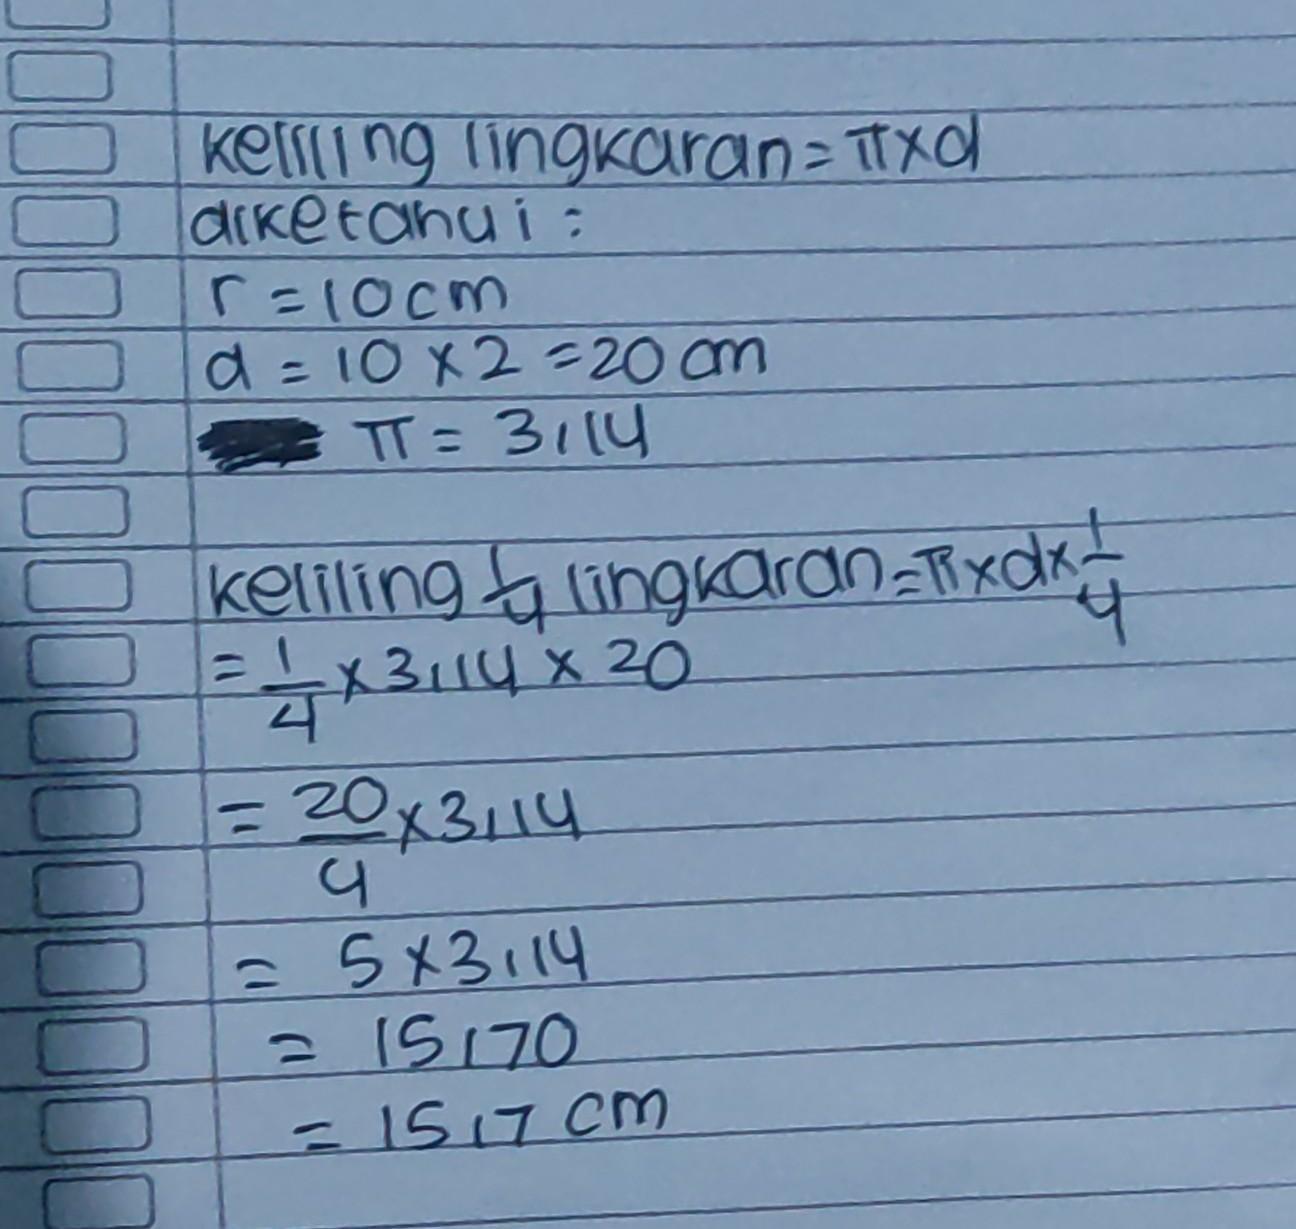 keliling lingkaran = π x d
diketahui :
r = 10 cm
d = 10 x 2 = 20 cm
π = 3,14
keliling 1/4 lingkaran = π x d x 1/4
= 1/4 x 3,14 x 20
= 20/4 x 3,14
= 5 x 3,14
= 15,70
= 15,7 cm